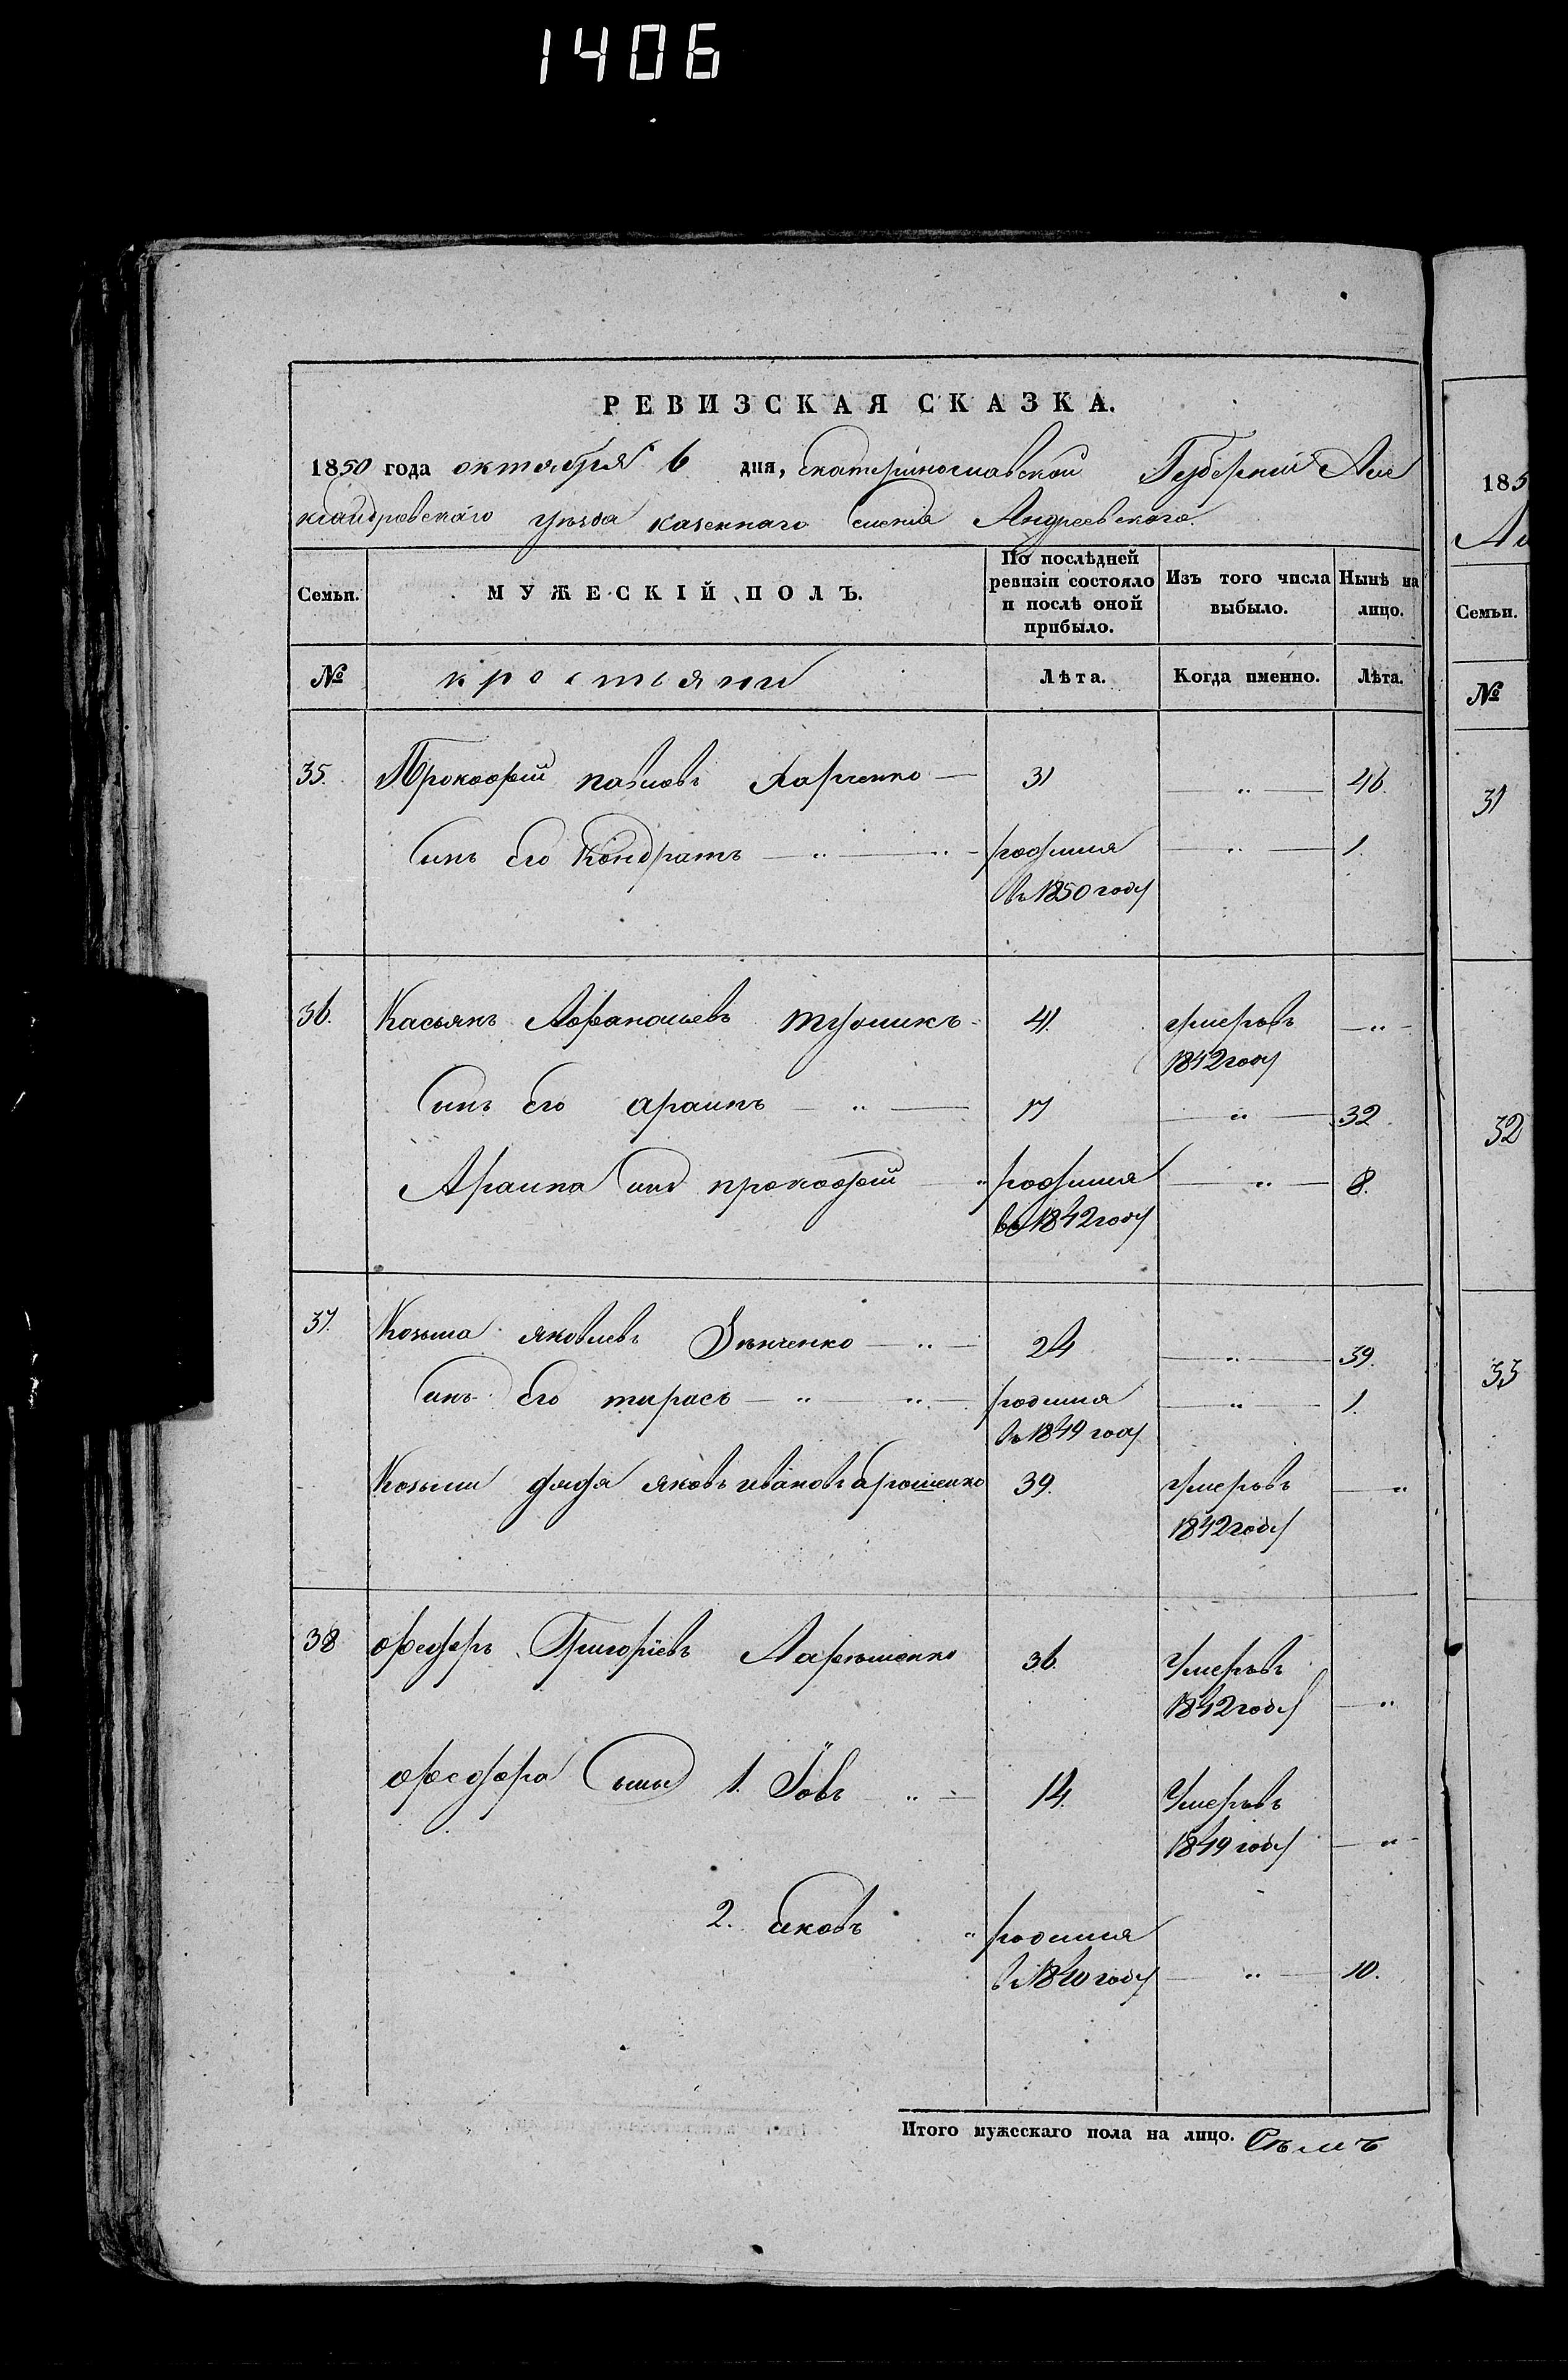 1406
РЕВИЗСКАЯ СКАЗКА.
1850 года октября 6 дня, Екатеринославской Губернiи Але
ксандровскаго уѣзда казеннаго селенiя Андреевского.
Семьи. МУЖЕСКIЙ ПОЛЪ. По послѣдней ревизiи состояло и послѣ оной прибыло. Изъ того числа выбыло. Нынѣ на лицо.
№ крестьяни Лѣта. Когда именно. Лѣта.
35. Прокофiй павловъ Харченко 31 " 46.
Синъ его Кондратъ " " родился " 1.
въ 1850 году
36. Касьянъ Афанасиевъ 41. умеръвъ "
1842 году
Синъ его арапъ " 17 " 32
Синъ прокофiй " родился " 8.
въ 1842 году
37. Козьма яковлевъ Зѣнченко " 24 " 39.
Синъ его тарасъ " " родился " 1.
въ 1849 году
Козьми дядя яковъ ивановъ 39. Умеръвъ "
1842 году
38 Федоръ Григорiевъ 36. Умеръвъ
1842 году "
Федора Сыны 1. Iовъ " 14. Умеръвъ
1849 году "
2. яковъ " родился
въ 1840 году " 10.
Итого мужескаго пола на лицо. Сѣмъ
185
Ал
Семьи.
№
31
32
33